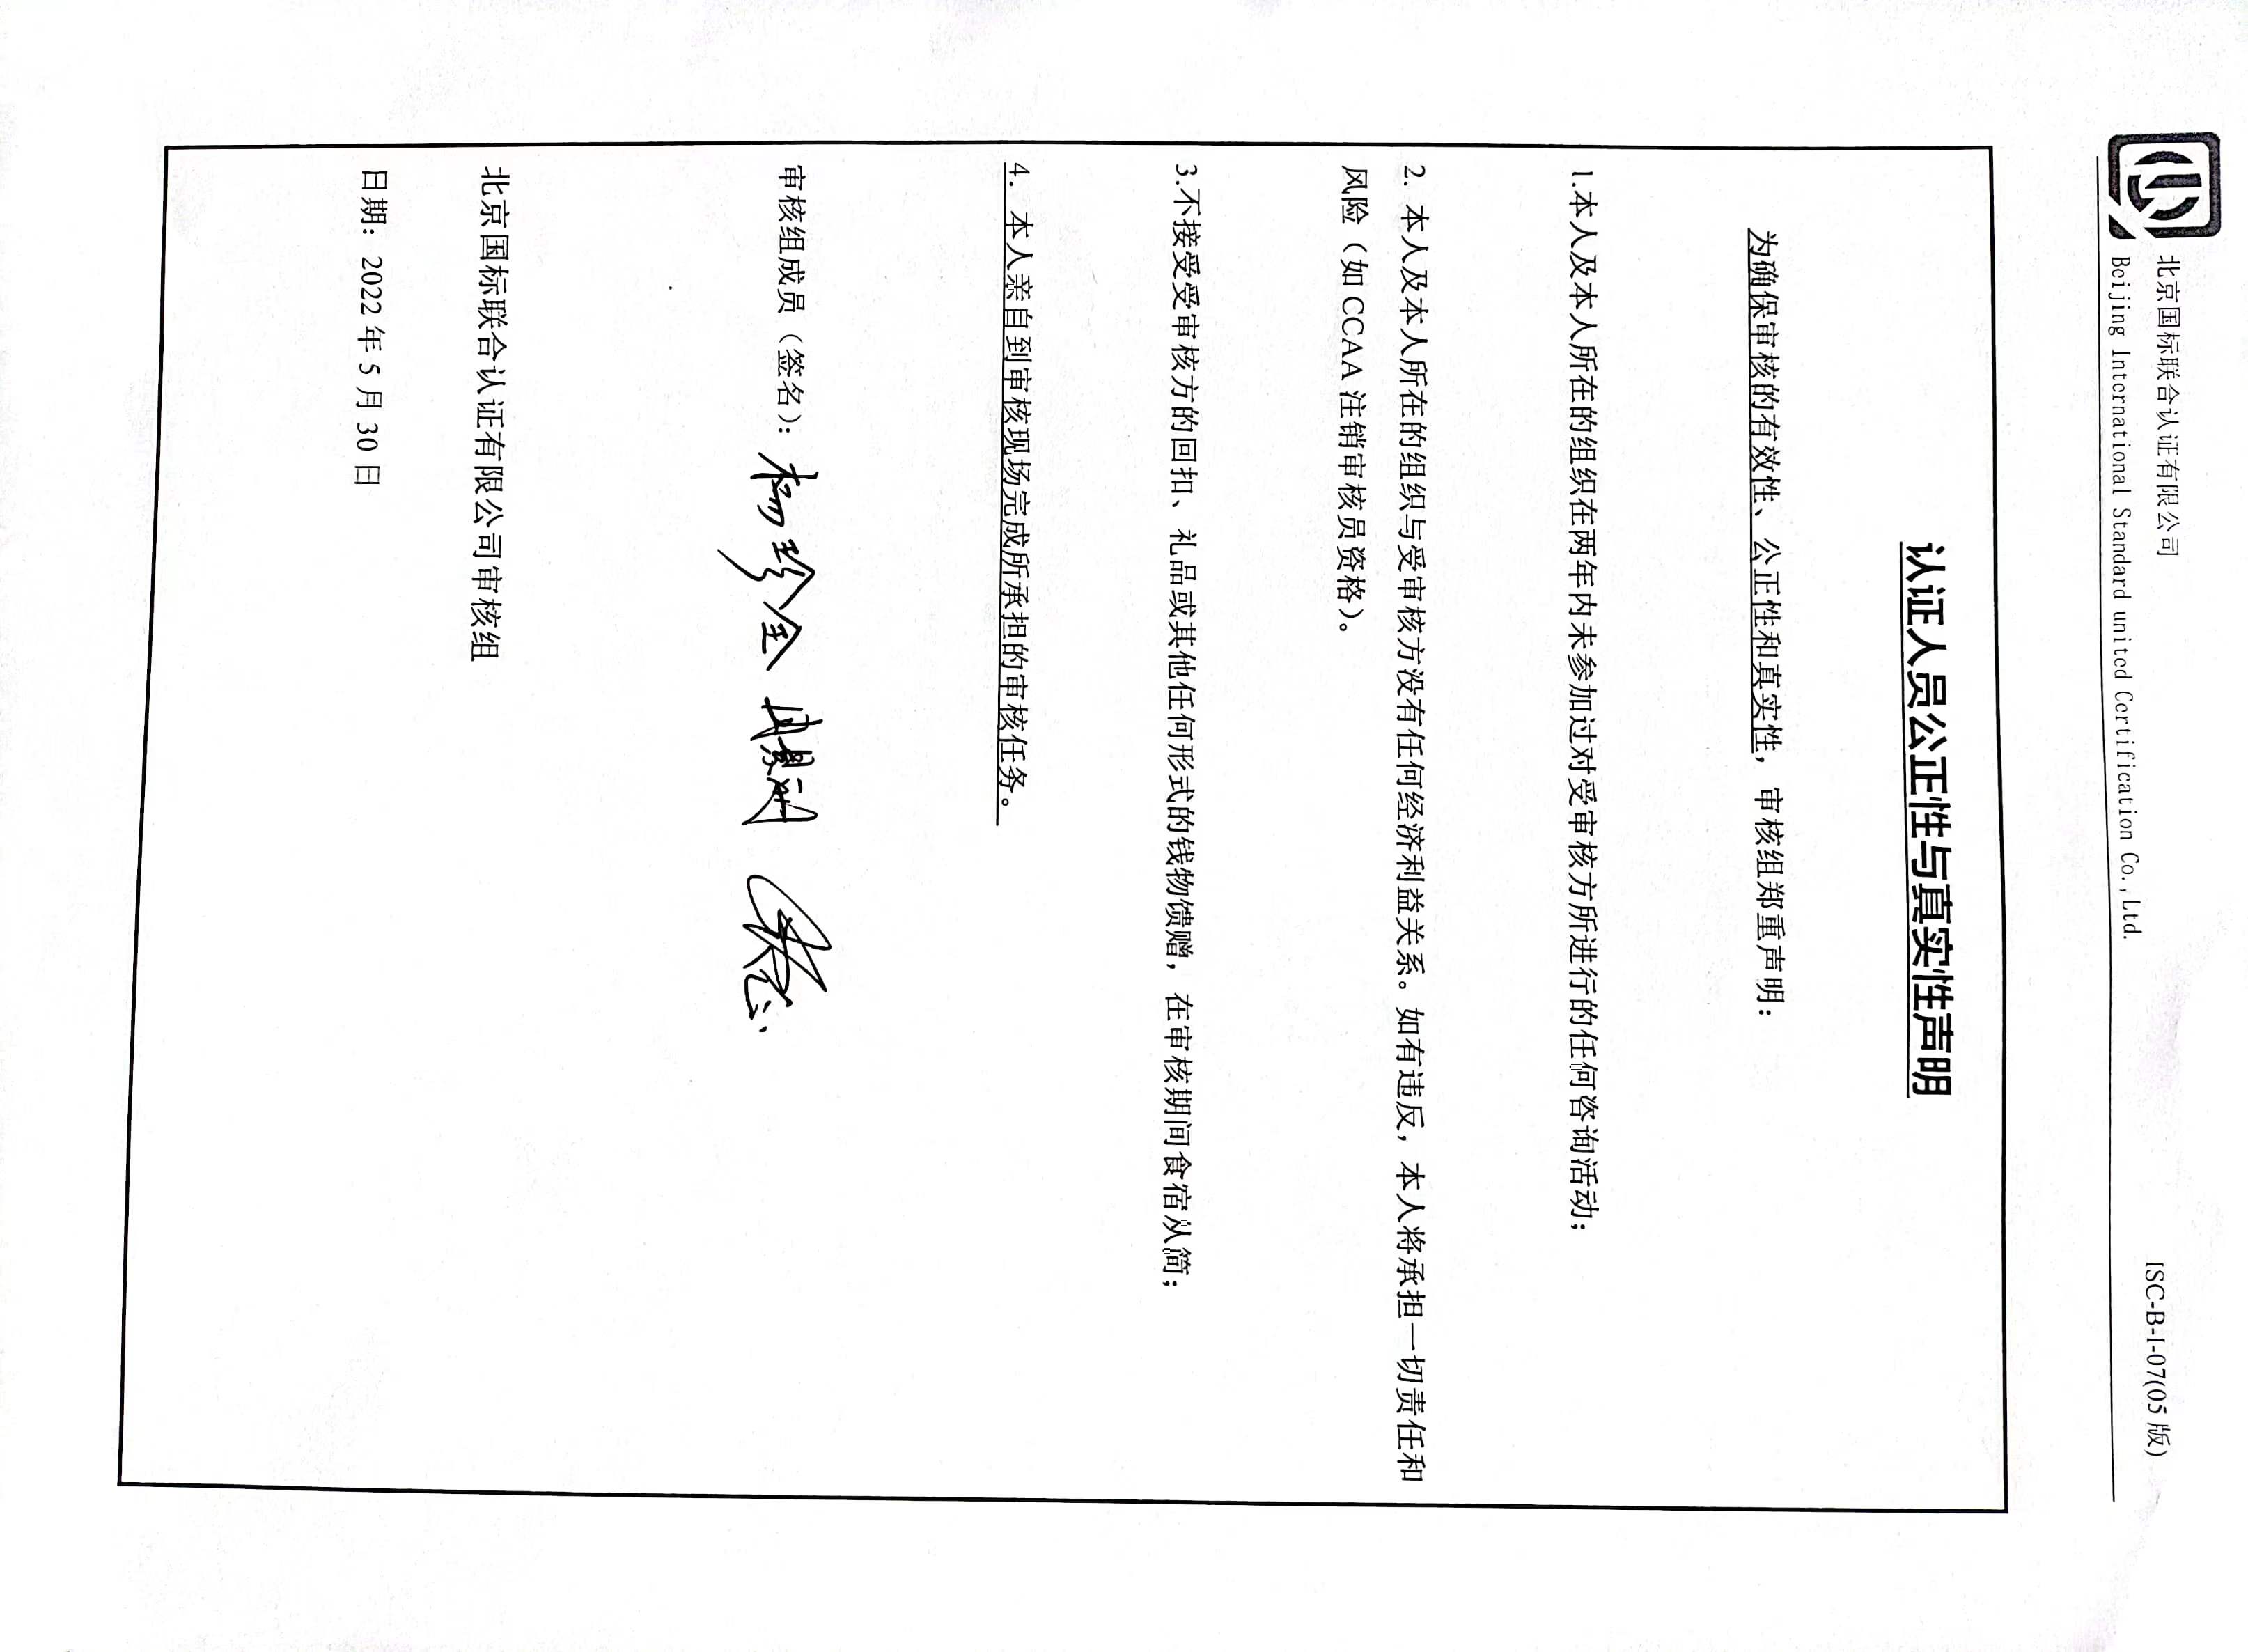 北京国标联合认证有限公司
Beijing International Standard united Certification Co.,Ltd.
ISC-B-I-07(05 版)
认证人员公正性与真实性声明
为确保审核的有效性、公正性和真实性，审核组郑重声明：
1.本人及本人所在的组织在两年内未参加过对受审核方所进行的任何咨询活动；
2. 本人及本人所在的组织与受审核方没有任何经济利益关系。如有违反，本人将承担一切责任和
风险（如 CCAA 注销审核员资格）。
3.不接受受审核方的回扣、礼品或其他任何形式的钱物馈赠，在审核期间食宿从简；
4. 本人亲自到审核现场完成所承担的审核任务。
审核组成员（签名）：杨珍全
北京国标联合认证有限公司审核组
日期：2022 年 5 月 30 日